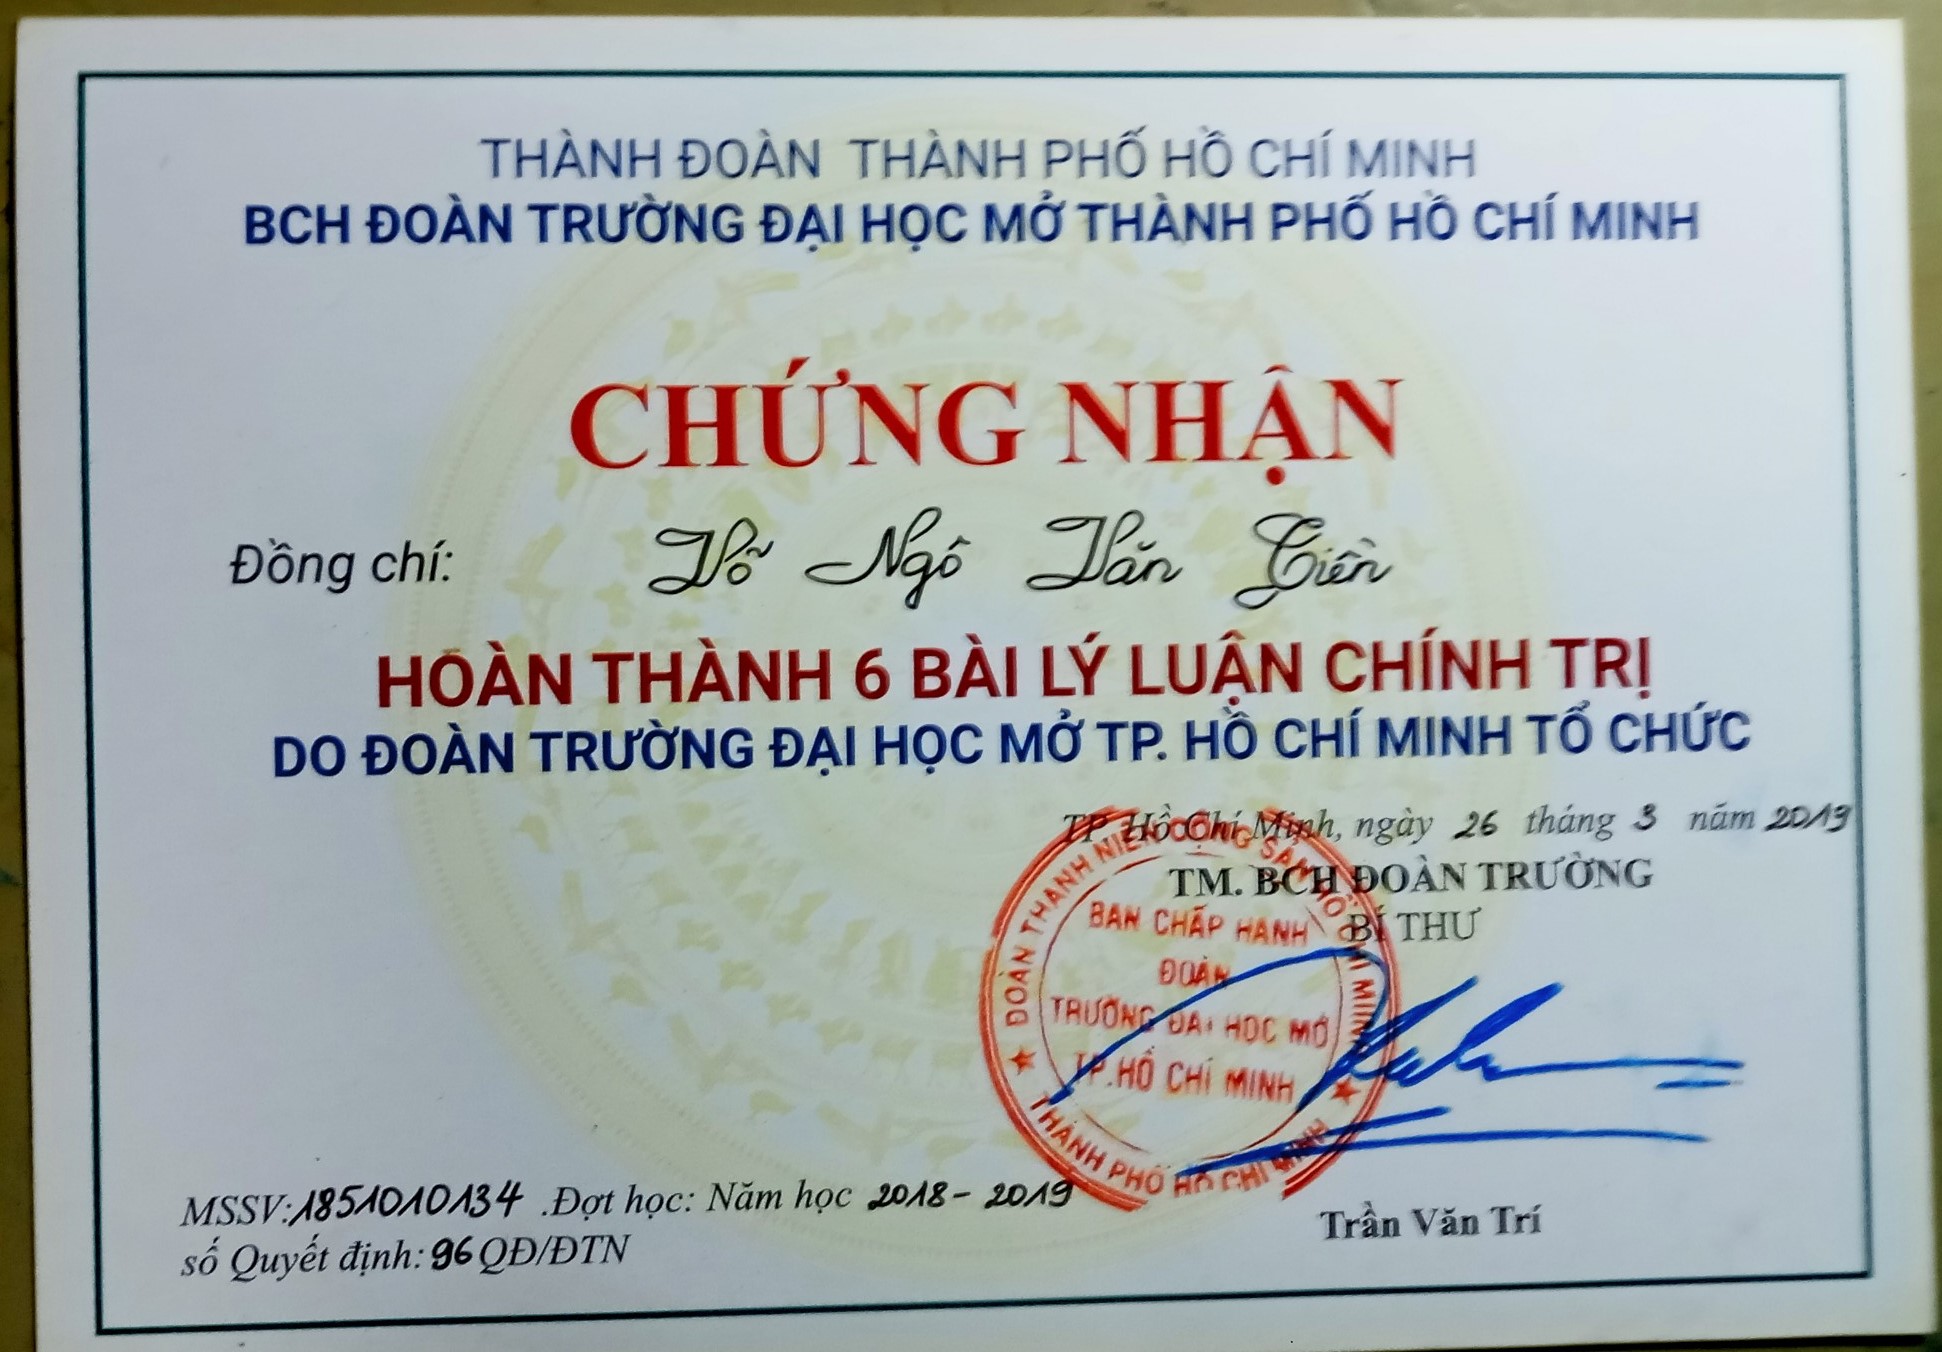 THÀNH ĐOÀN THÀNH PHỐ HỒ CHÍ MINH
BCH ĐOÀN TRƯỜNG ĐẠI HỌC MỞ THÀNH PHỐ HỒ CHÍ MINH
CHỨNG NHẬN
Đồng chí: Võ Ngô Văn Tiền
HOÀN THÀNH 6 BÀI LÝ LUẬN CHÍNH TRỊ
DO ĐOÀN TRƯỜNG ĐẠI HỌC MỞ TP. HỒ CHÍ MINH TỔ CHỨC
TP. Hồ Chí Minh, ngày 26 tháng 3 năm 2019
TM. BCH ĐOÀN TRƯỜNG
BÍ THƯ
ĐOÀN THANH NIÊN CỘNG SẢN HỒ CHÍ MINH
BAN CHẤP HÀNH
ĐOÀN
TRƯỜNG ĐẠI HỌC MỞ
TP.HỒ CHÍ MINH
THÀNH PHỐ HỒ CHÍ MINH
Trần Văn Trí
MSSV:1851010134 .Đợt học: Năm học 2018 - 2019
số Quyết định: 96 QĐ/ĐTN